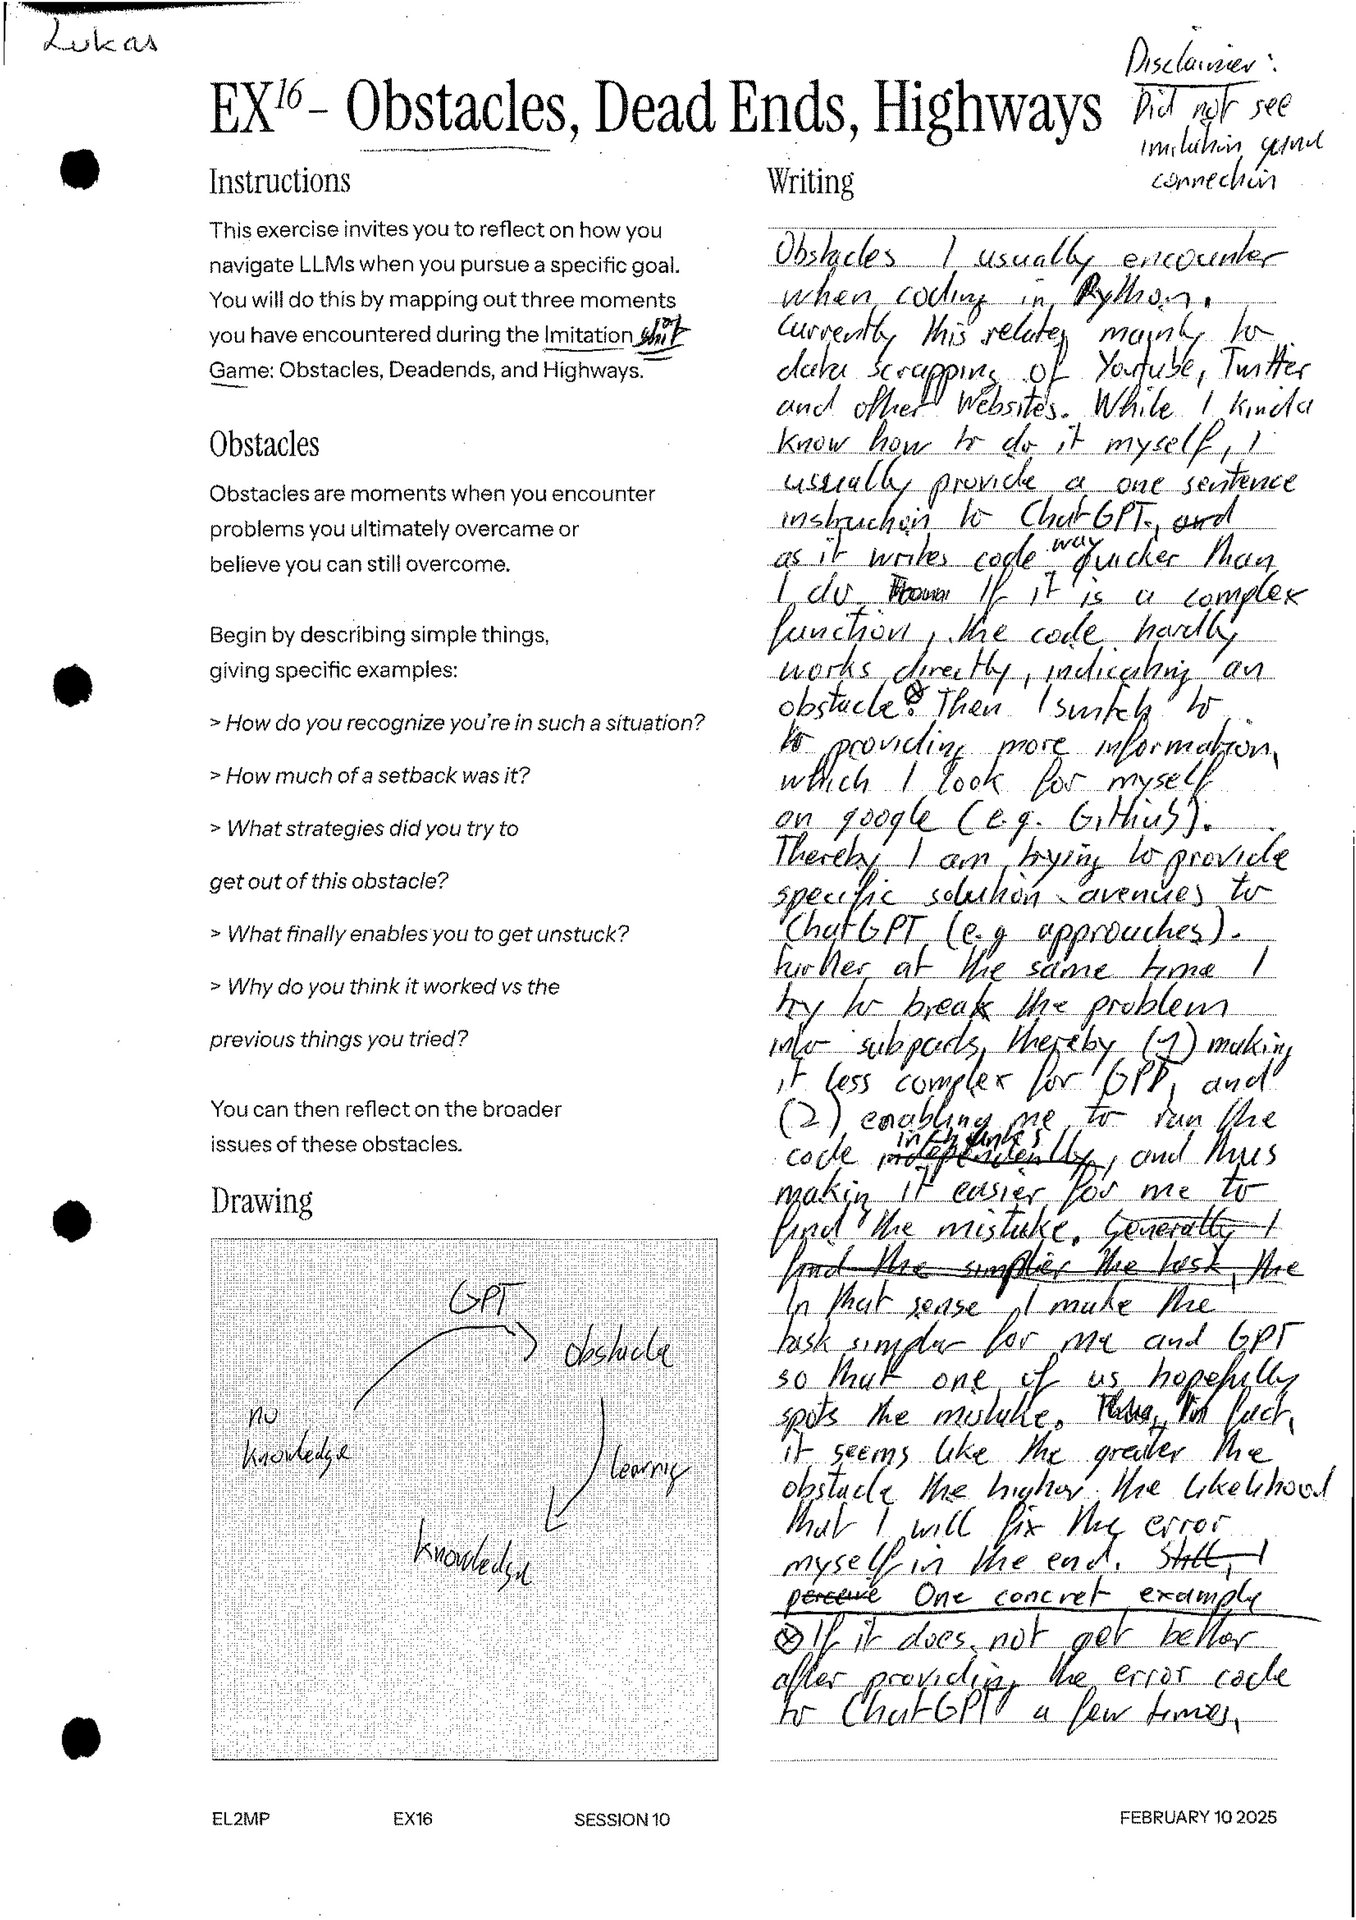 Lukas
Disclaimer:
Did not see
imitation game
connection
EX16 – Obstacles, Dead Ends, Highways
Instructions
This exercise invites you to reflect on how you
navigate LLMs when you pursue a specific goal.
You will do this by mapping out three moments
you have encountered during the Imitation
Game: Obstacles, Deadends, and Highways.
Obstacles
Obstacles are moments when you encounter
problems you ultimately overcame or
believe you can still overcome.
Begin by describing simple things,
giving specific examples:
> How do you recognize you're in such a situation?
> How much of a setback was it?
> What strategies did you try to
get out of this obstacle?
> What finally enables you to get unstuck?
> Why do you think it worked vs the
previous things you tried?
You can then reflect on the broader
issues of these obstacles.
Drawing
GPT
obstacle
no
knowledge
learnig
knowledge
Writing
Obstacles I usually encounter
when coding in Python.
Currently this relates mainly to
data scrapping of Youtube, Twitter
and other Websites. While I kinda
know how to do it myself, I
usually provide a one sentence
instruction to ChatGPT, and
as it writes code way quicker than
I do If it is a complex
function, the code hardly
works directly, indicating an
obstacle ⊗. Then I switch to
to providing more information,
which I look for myself
on google (e.g. GitHub).
Thereby I am trying to provide
specific solution avenues to
ChatGPT (e.g approaches).
Further at the same time I
try to break the problem
into subparts, thereby (1) making
it less complex for GPT, and
(2) enabling me to run the
code independently in chunks, and thus
making it easier for me to
find the mistake. Generally I
find the simplier the task, the
In that sense I make the
task simpler for me and GPT
so that one of us hopefully
spots the mistake. In fact,
it seems like the greater the
obstacle the higher the likelihood
that I will fix the error
myself in the end. Still, I
perceive One concret example
⊗ If it does not get better
after providing the error code
to ChatGPT a few times,
EL2MP
EX16
SESSION 10
FEBRUARY 10 2025